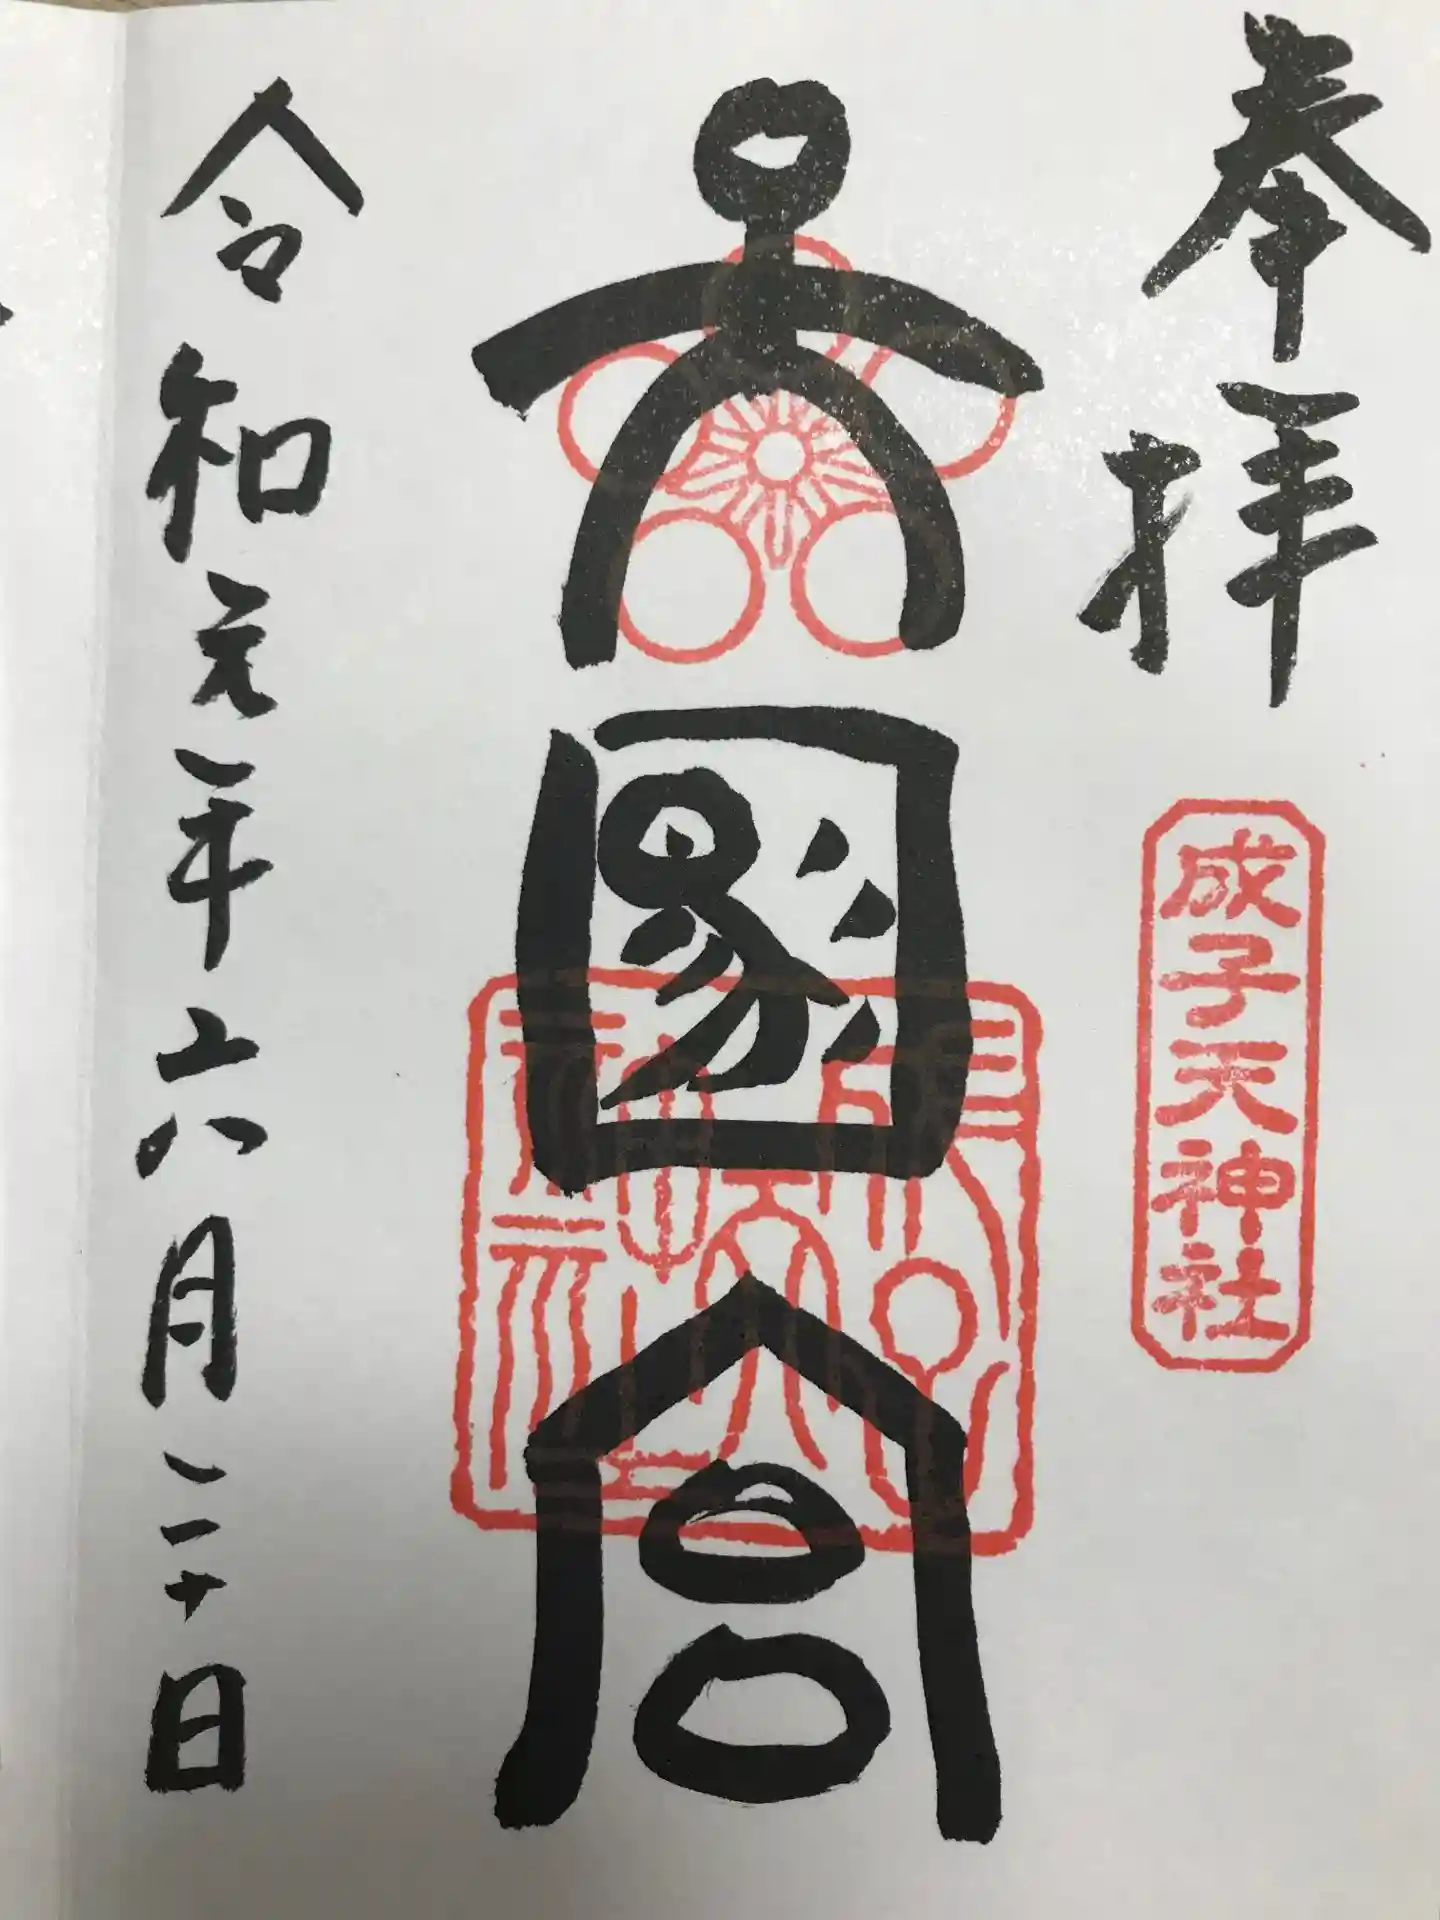 奉拝
成子天神社
大國宮
成子天神社
令和元年六月二十日